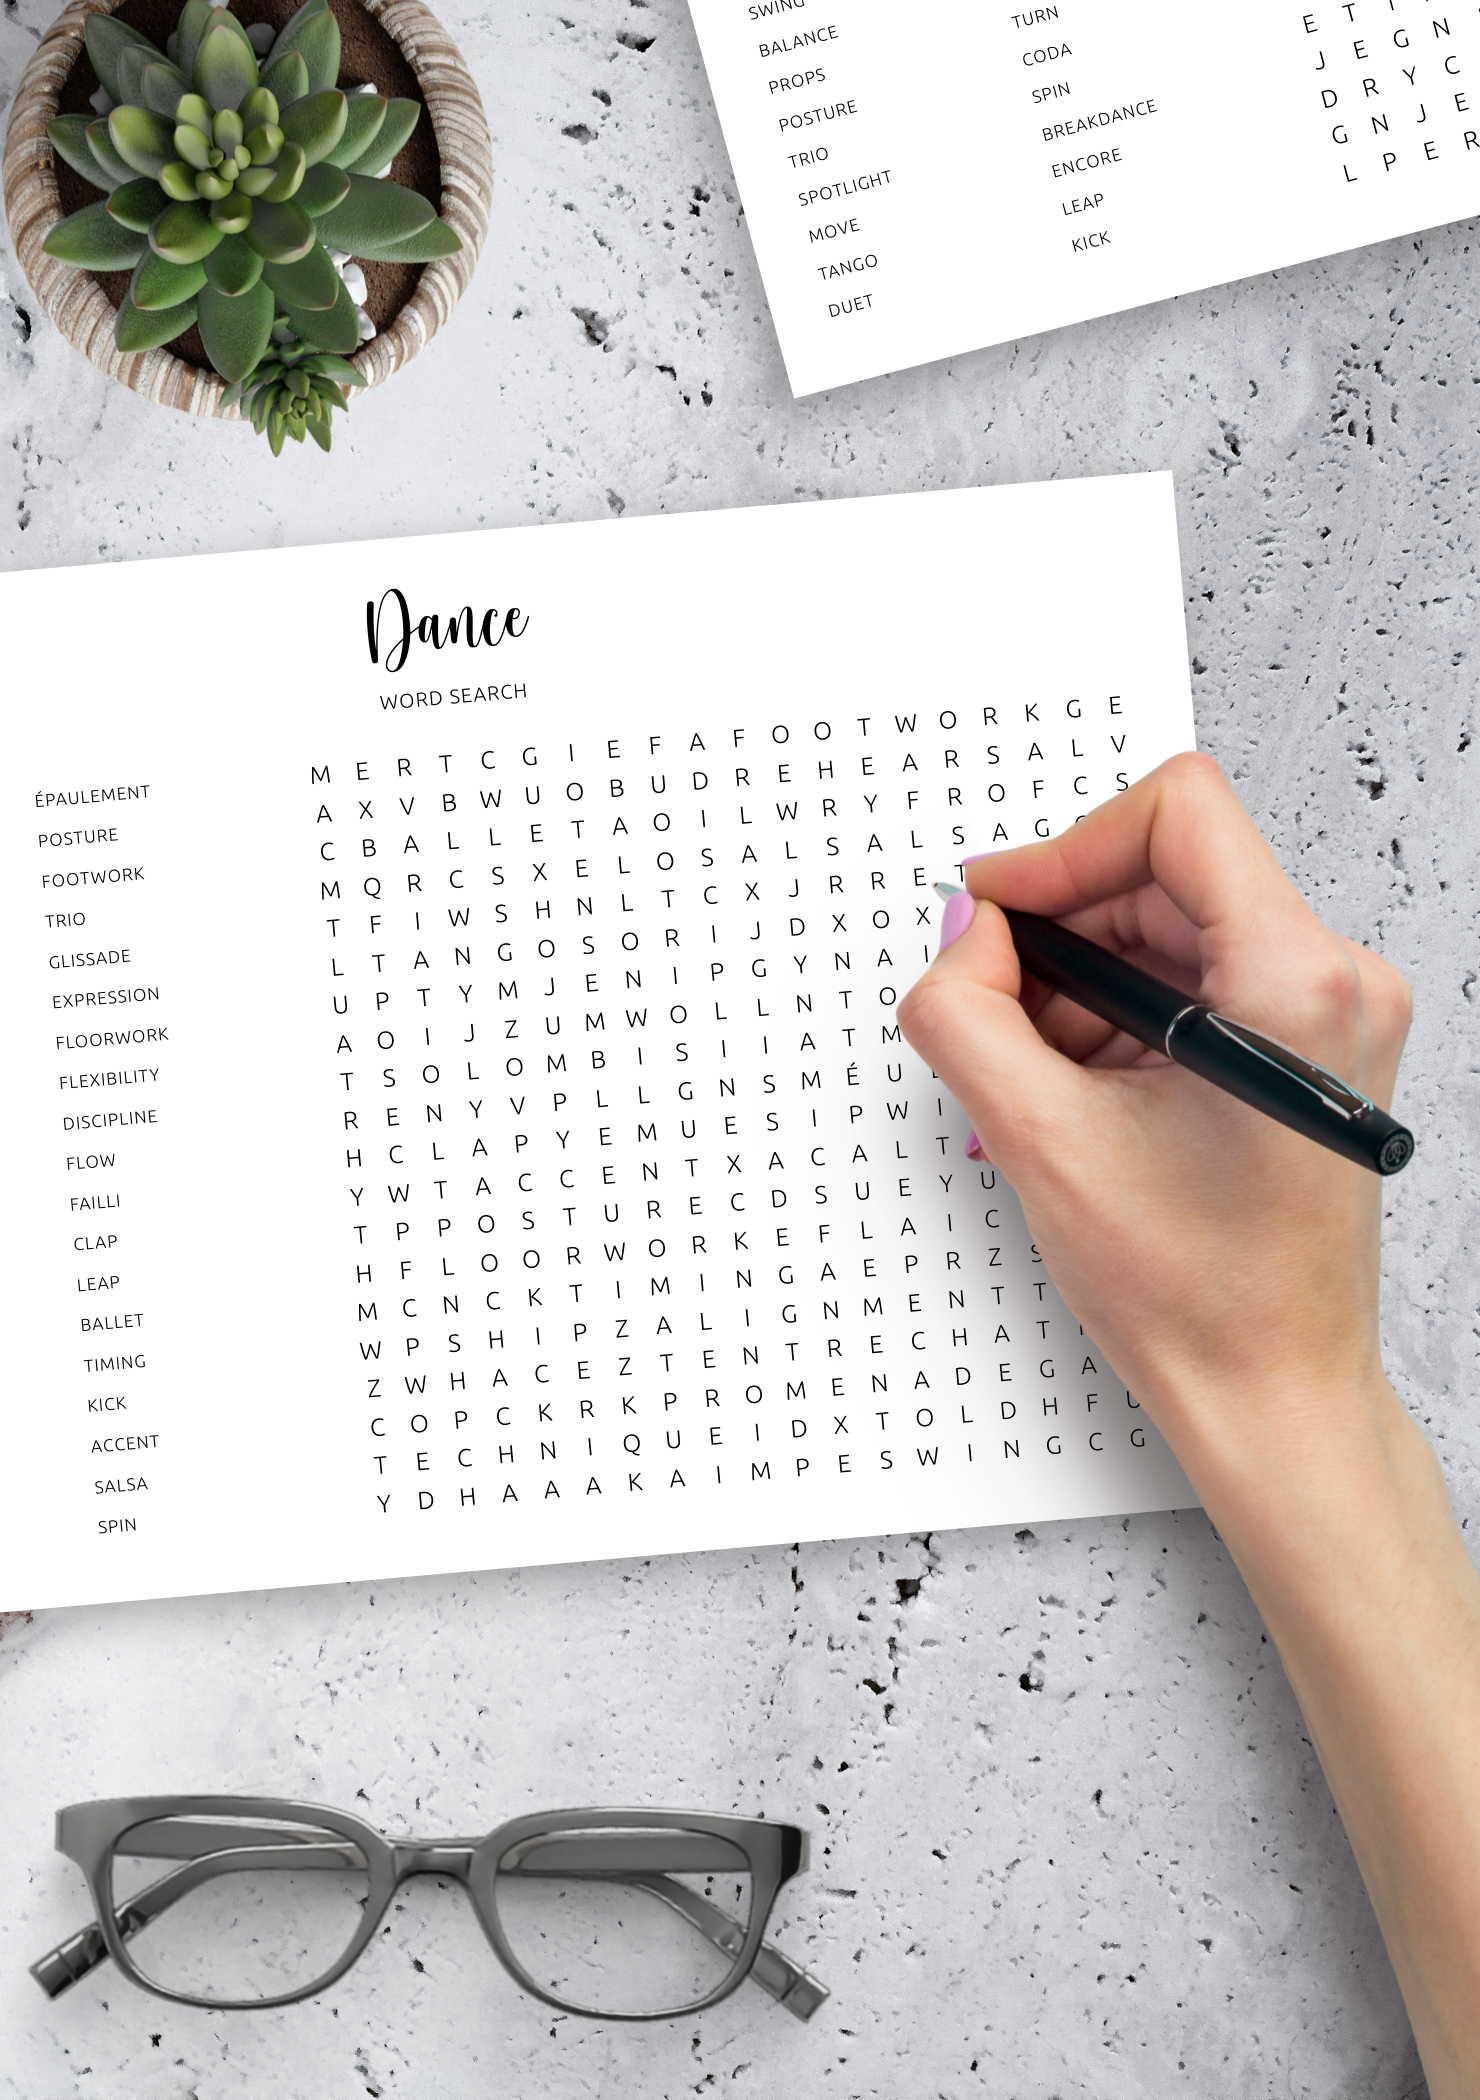 BALANCE
PROPS
POSTURE
TRIO
SPOTLIGHT
MOVE
TANGO
DUET
TURN
CODA
SPIN
BREAKDANCE
ENCORE
LEAP
KICK
E T I
J E G N
D R Y C
G N J E
L P E R
Dance
WORD SEARCH
ÉPAULEMENT
POSTURE
FOOTWORK
TRIO
GLISSADE
EXPRESSION
FLOORWORK
FLEXIBILITY
DISCIPLINE
FLOW
FAILLI
CLAP
LEAP
BALLET
TIMING
KICK
ACCENT
SALSA
SPIN
M E R T C G I E F A F O O T W O R K G E
A X V B W U O B U D R E H E A R S A L V
C B A L L E T A O I L W R Y F R O F C S
M Q R C S X E L O S A L S A L S A G
T F I W S H N L T C X J R R E T
L T A N G O S O R I J D X O X
U P T Y M J E N I P G Y N A I
A O I J Z U M W O L L N T O
T S O L O M B I S I I A T M
R E N Y V P L L G N S M É U
H C L A P Y E M U E S I P W I
Y W T A C C E N T X A C A L T
T P P O S T U R E C D S U E Y U
H F L O O R W O R K E F L A I C
M C N C K T I M I N G A E P R Z S
W P S H I P Z A L I G N M E N T T
Z W H A C E Z T E N T R E C H A T
C O P C K R K P R O M E N A D E G A
T E C H N I Q U E I D X T O L D H F U
Y D H A A A K A I M P E S W I N G C G